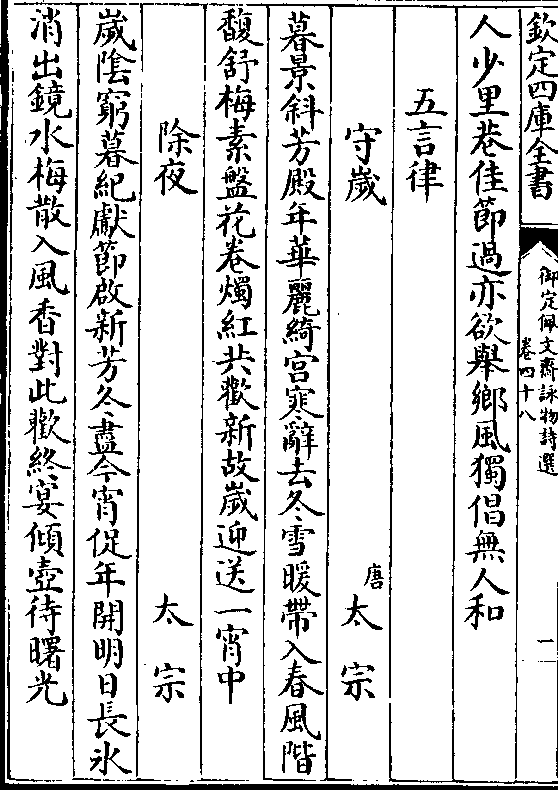 欽定四庫全書
御定佩文齋詠物詩選
卷四十八
二
人少里巷佳節過亦欲舉鄉風獨倡無人和
五言律
守歲
唐太宗
暮景斜芳殿年華麗綺宮寒辭去冬雪暖帶入春風階
馥舒梅素盤花卷燭紅共歡新故歲迎送一宵中
除夜
太宗
歲陰窮暮紀獻節啟新芳冬盡今宵促年開明日長氷
消出鏡水梅散入風香對此歡終宴傾壺待曙光